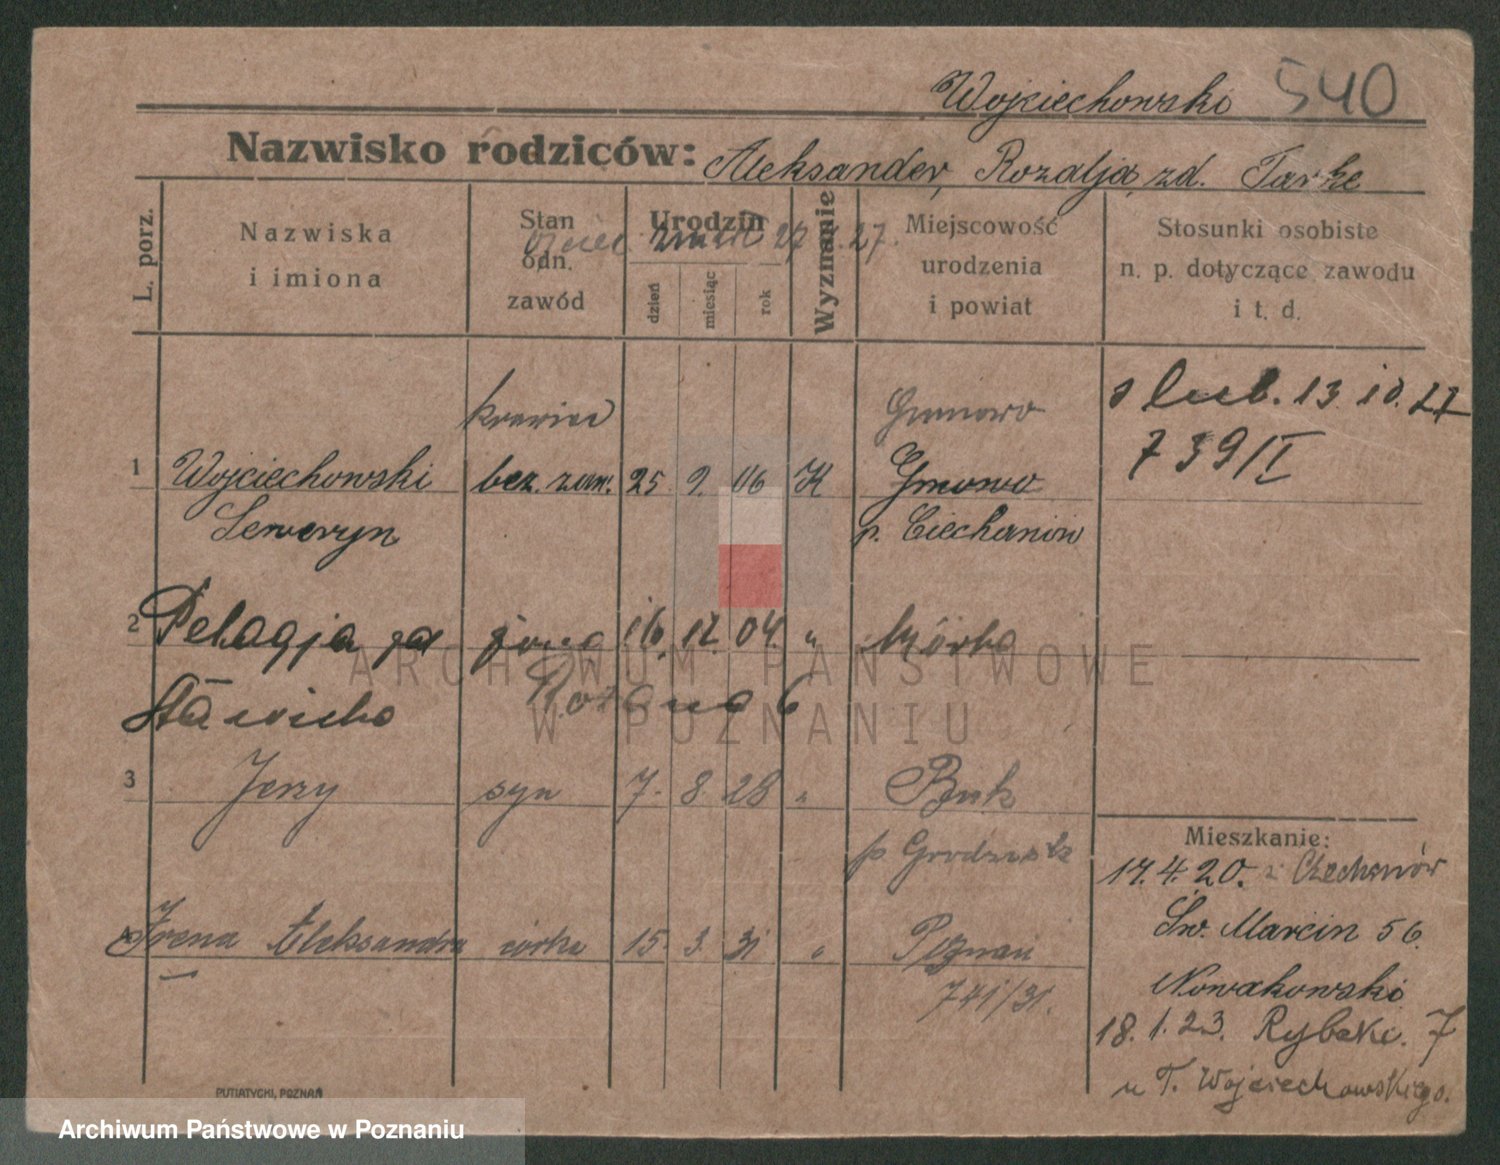 Wojciechowski 540
Nazwisko rodziców: Aleksander, Rozalja, zd. Tarke
L. porz.
Nazwiska
i imiona
Stan
odn.
zawód
Urodzin
dzień
miesiąc
rok
Wyznanie
Miejscowość
urodzenia
i powiat
Stosunki osobiste
n. p. dotyczące zawodu
i t. d.
ojciec zmarł 27. .27.
krawiec
ślub. 13 10. 27
739/I
1 Wojciechowski bez. zaw. 25 9. 06 K
Seweryn p. Ciechanów
2 Pelagja zd żona 16. 12. 04. „ Mórka
Różana 6
3 Jerzy syn 7. 8. 28 „ Buk
p Grodzisk
Irena Aleksandra córka 15 3. 31 „ Poznań
741/31.
Mieszkanie:
17.4.20. z Ciechanów
Św. Marcin 56.
Nowakowski
18. 1. 23. Rybaki. 7
u T. Wojciechowskiego.
PUTIATYCKI, POZNAŃ
ARCHIWUM PAŃSTWOWE
W POZNANIU
Archiwum Państwowe w Poznaniu